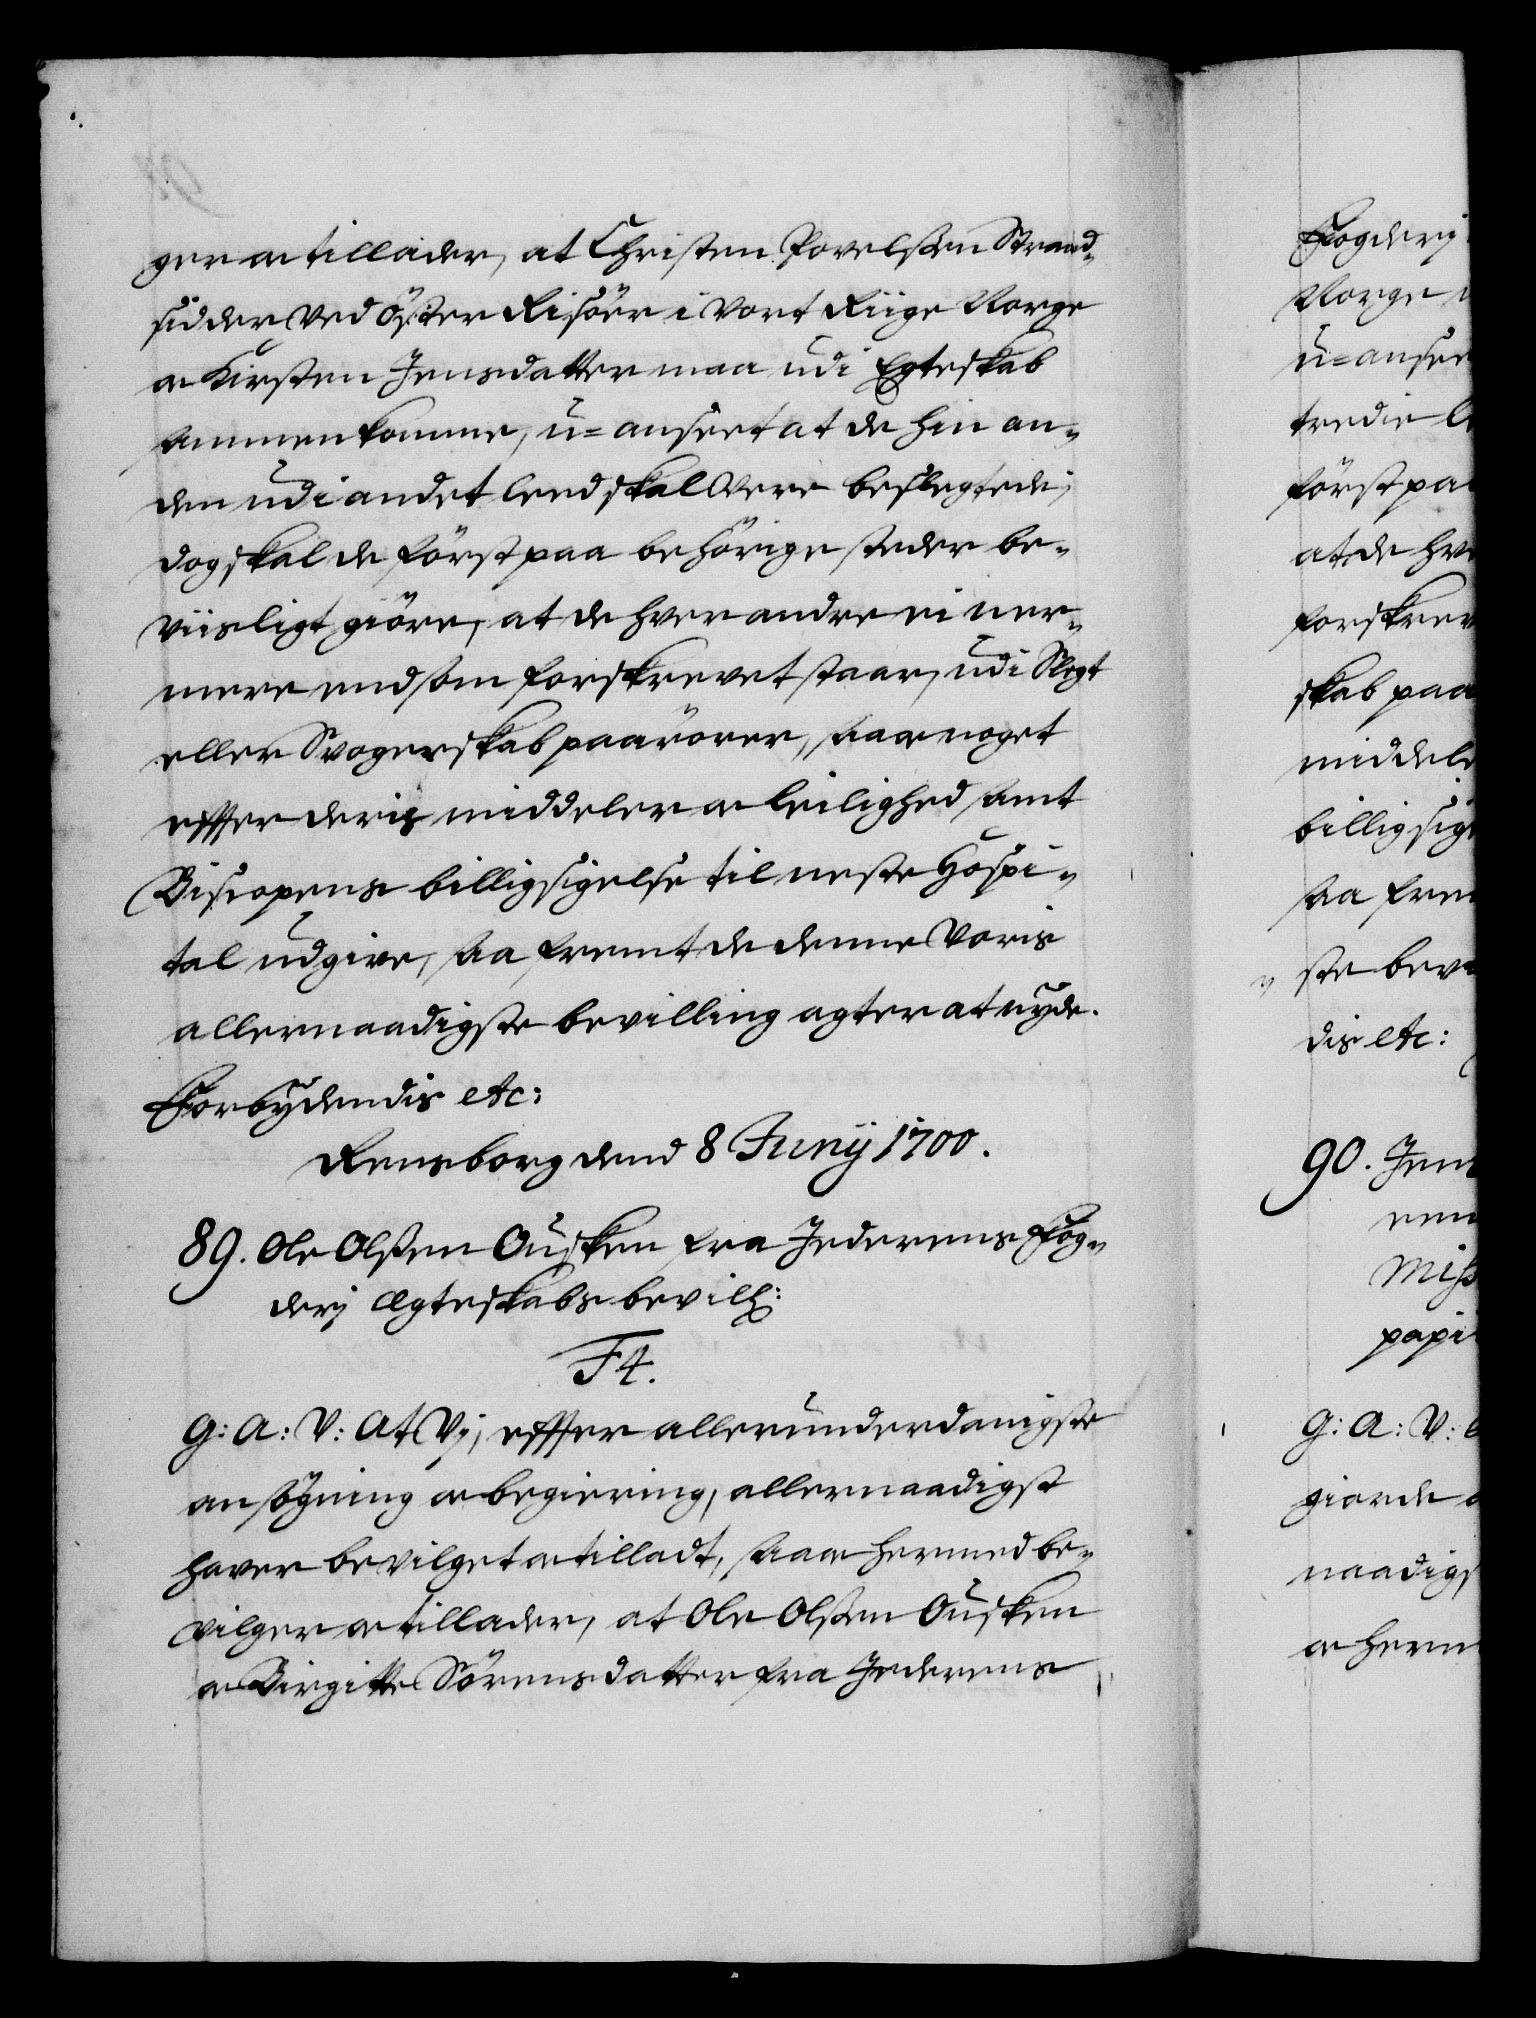 ger oc tillader, at Christen Povelssen Strand-
sidder ved Öster Risöer i vort Riige Norge
oc Kirsten Jensdatter maa udi Egteskab
sammenkomme, u=anseet at de hin an-
den udi andet Leed skal Vere beslegtede,
dog skal de först paa behörige steder be-
viisligt giöre, at de hver andre ei ner-
mere end som forskrevet staar, udi Slegt
eller Svogerskab paarörer, saa oc noget
effter deris middeler oc leilighed samt
Biscopens billigsigelse til neste Hospi-
tal udgive, saa fremt de denne Voris
allernaadigste bevilling agter at nyde.
Forbydendis etc:
Rensborg dend 8 Juny 1700.
89. Ole Olssen Ousken fra Jederens Fog-
derj Ægteskabs bevill:
F4.
G: A: V: At Vj, effter allerunderdanigste
ansögning oc begiering, allernaadigst
haver bevilget oc tilladt, saa oc hermed be-
vilger oc tillader, at Ole Olssen Ousken
oc Birgitte Sörensdatter fra Jederens
Fogderj
Norge
u=anseet
tredie
först paa
at de
forskrev
skab paa
middele
billigsig
saa frem
ste bev
dis etc:
90. Jens
G: A: V:
giorde
naadigs
oc herm